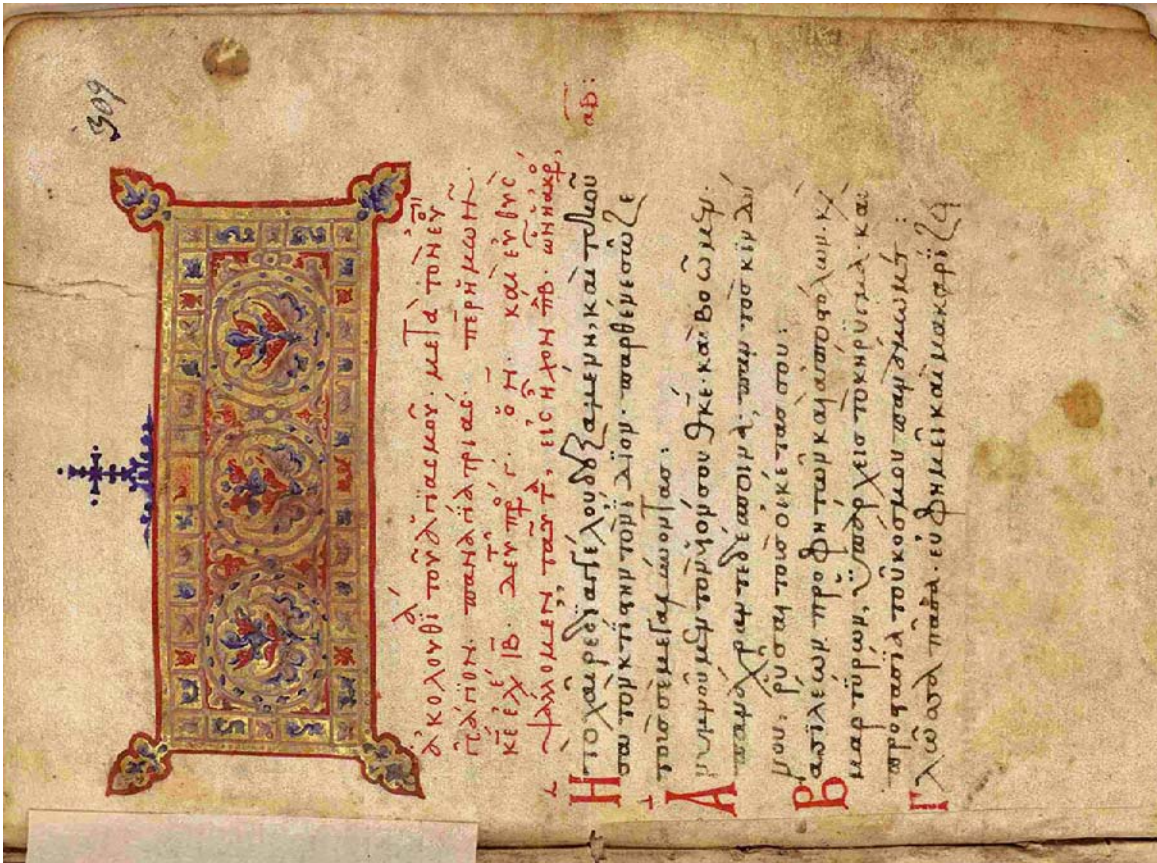 309
ἀκολουθί τοῦ ἁγιασμοῦ. μετὰ τὸν
παναγία τριάς.
κε ἐλέ ιβ. καὶ εὐθὺς
ψάλλομεν ταῦτ, εἰς ἦχον πβ.
αβ:
Ἡ τὸ χαῖρε δι ἀγγέλου δεξαμένη, καὶ τεκοῦ
σα τὸν κτίστην τὸν ἴδιον. παρθένε σῶζε
τοὺς σὲ μεγαλύνοντας:
Ἀνυμνοῦμεν τὸν υἱόν σου θκε. καὶ βοῶμεν.
πανάχραντε δέσποινα, παντὸς κινδύ
νου, ῥῦσαι τοὺς οἰκέτας σου:
Βασιλέων προφητῶν καὶ ἀποστόλων. κ
μαρτύρων, ὑπάρχεις τὸ κήρυγμα. καὶ
προστασία τοῦ κόσμου πανάμωμε:
Γλῶσσα πᾶσα. εὐφημεῖ καὶ μακαρίζει